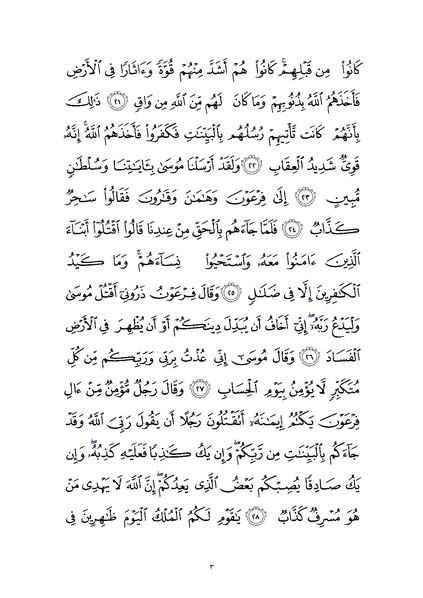 كَانُوا۟ مِن قَبْلِهِمْ ۚ كَانُوا۟ هُمْ أَشَدَّ مِنْهُمْ قُوَّةً وَءَاثَارًا فِى ٱلْأَرْضِ
فَأَخَذَهُمُ ٱللَّهُ بِذُنُوبِهِمْ وَمَا كَانَ لَهُم مِّنَ ٱللَّهِ مِن وَاقٍ ﴿٢١﴾ ذَٰلِكَ
بِأَنَّهُمْ كَانَت تَّأْتِيهِمْ رُسُلُهُم بِٱلْبَيِّنَـٰتِ فَكَفَرُوا۟ فَأَخَذَهُمُ ٱللَّهُ ۚ إِنَّهُۥ
قَوِىٌّ شَدِيدُ ٱلْعِقَابِ ﴿٢٢﴾ وَلَقَدْ أَرْسَلْنَا مُوسَىٰ بِـَٔايَـٰتِنَا وَسُلْطَـٰنٍ
مُّبِينٍ ﴿٢٣﴾ إِلَىٰ فِرْعَوْنَ وَهَـٰمَـٰنَ وَقَـٰرُونَ فَقَالُوا۟ سَـٰحِرٌ
كَذَّابٌ ﴿٢٤﴾ فَلَمَّا جَآءَهُم بِٱلْحَقِّ مِنْ عِندِنَا قَالُوا۟ ٱقْتُلُوٓا۟ أَبْنَآءَ
ٱلَّذِينَ ءَامَنُوا۟ مَعَهُۥ وَٱسْتَحْيُوا۟ نِسَآءَهُمْ ۚ وَمَا كَيْدُ
ٱلْكَـٰفِرِينَ إِلَّا فِى ضَلَـٰلٍ ﴿٢٥﴾ وَقَالَ فِرْعَوْنُ ذَرُونِىٓ أَقْتُلْ مُوسَىٰ
وَلْيَدْعُ رَبَّهُۥٓ ۖ إِنِّىٓ أَخَافُ أَن يُبَدِّلَ دِينَكُمْ أَوْ أَن يُظْهِرَ فِى ٱلْأَرْضِ
ٱلْفَسَادَ ﴿٢٦﴾ وَقَالَ مُوسَىٰٓ إِنِّى عُذْتُ بِرَبِّى وَرَبِّكُم مِّن كُلِّ
مُتَكَبِّرٍ لَّا يُؤْمِنُ بِيَوْمِ ٱلْحِسَابِ ﴿٢٧﴾ وَقَالَ رَجُلٌ مُّؤْمِنٌ مِّنْ ءَالِ
فِرْعَوْنَ يَكْتُمُ إِيمَـٰنَهُۥٓ أَتَقْتُلُونَ رَجُلًا أَن يَقُولَ رَبِّىَ ٱللَّهُ وَقَدْ
جَآءَكُم بِٱلْبَيِّنَـٰتِ مِن رَّبِّكُمْ ۖ وَإِن يَكُ كَـٰذِبًا فَعَلَيْهِ كَذِبُهُۥ ۖ وَإِن
يَكُ صَادِقًا يُصِبْكُم بَعْضُ ٱلَّذِى يَعِدُكُمْ ۖ إِنَّ ٱللَّهَ لَا يَهْدِى مَنْ
هُوَ مُسْرِفٌ كَذَّابٌ ﴿٢٨﴾ يَـٰقَوْمِ لَكُمُ ٱلْمُلْكُ ٱلْيَوْمَ ظَـٰهِرِينَ فِى
٣